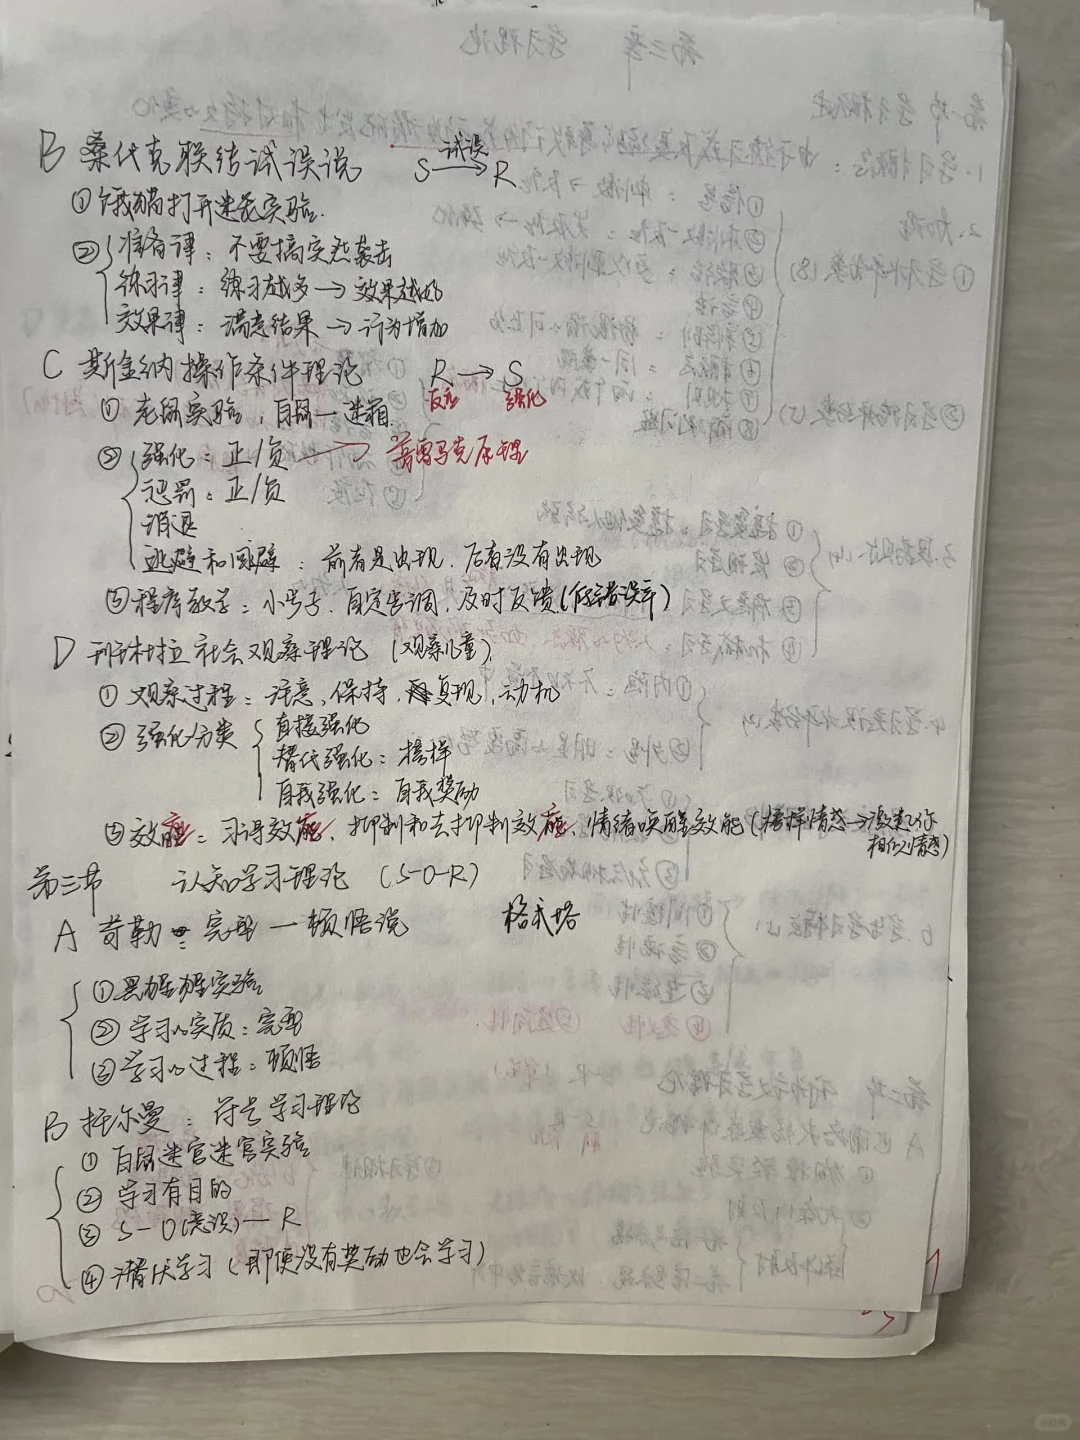 B 桑代克联结试误说 S —试误→ R
① 饿猫打开迷笼实验.
② 准备律：不要搞突然袭击
练习律：练习越多→效果越好
效果律：满意结果→行为增加
C 斯金纳操作条件理论 R → S
反应 强化
① 老鼠实验，白鼠一迷箱
② 强化：正/负 → 普雷马克原理
惩罚：正/负
消退
逃避和回避：前者是出现，后者没有出现
③ 程序教学：小步子，自定步调，及时反馈(低错误率)
D 班杜拉社会观察理论 (观察儿童)
① 观察过程：注意、保持、复现、动机
② 强化分类 直接强化
替代强化：榜样
自我强化：自我奖励
③ 效应：习得效应、抑制和去抑制效应、情绪唤醒效能(榜样情感→激起你
相似情感)
第三节 认知学习理论 (S-O-R)
A 苛勒：完型—顿悟说 格式塔
① 黑猩猩实验
② 学习的实质：完型
③ 学习的过程：顿悟
B 托尔曼：符号学习理论
① 白鼠迷宫迷宫实验
② 学习有目的
③ S-O(意识)—R
④ 潜伏学习(即使没有奖励也会学习)
小红书